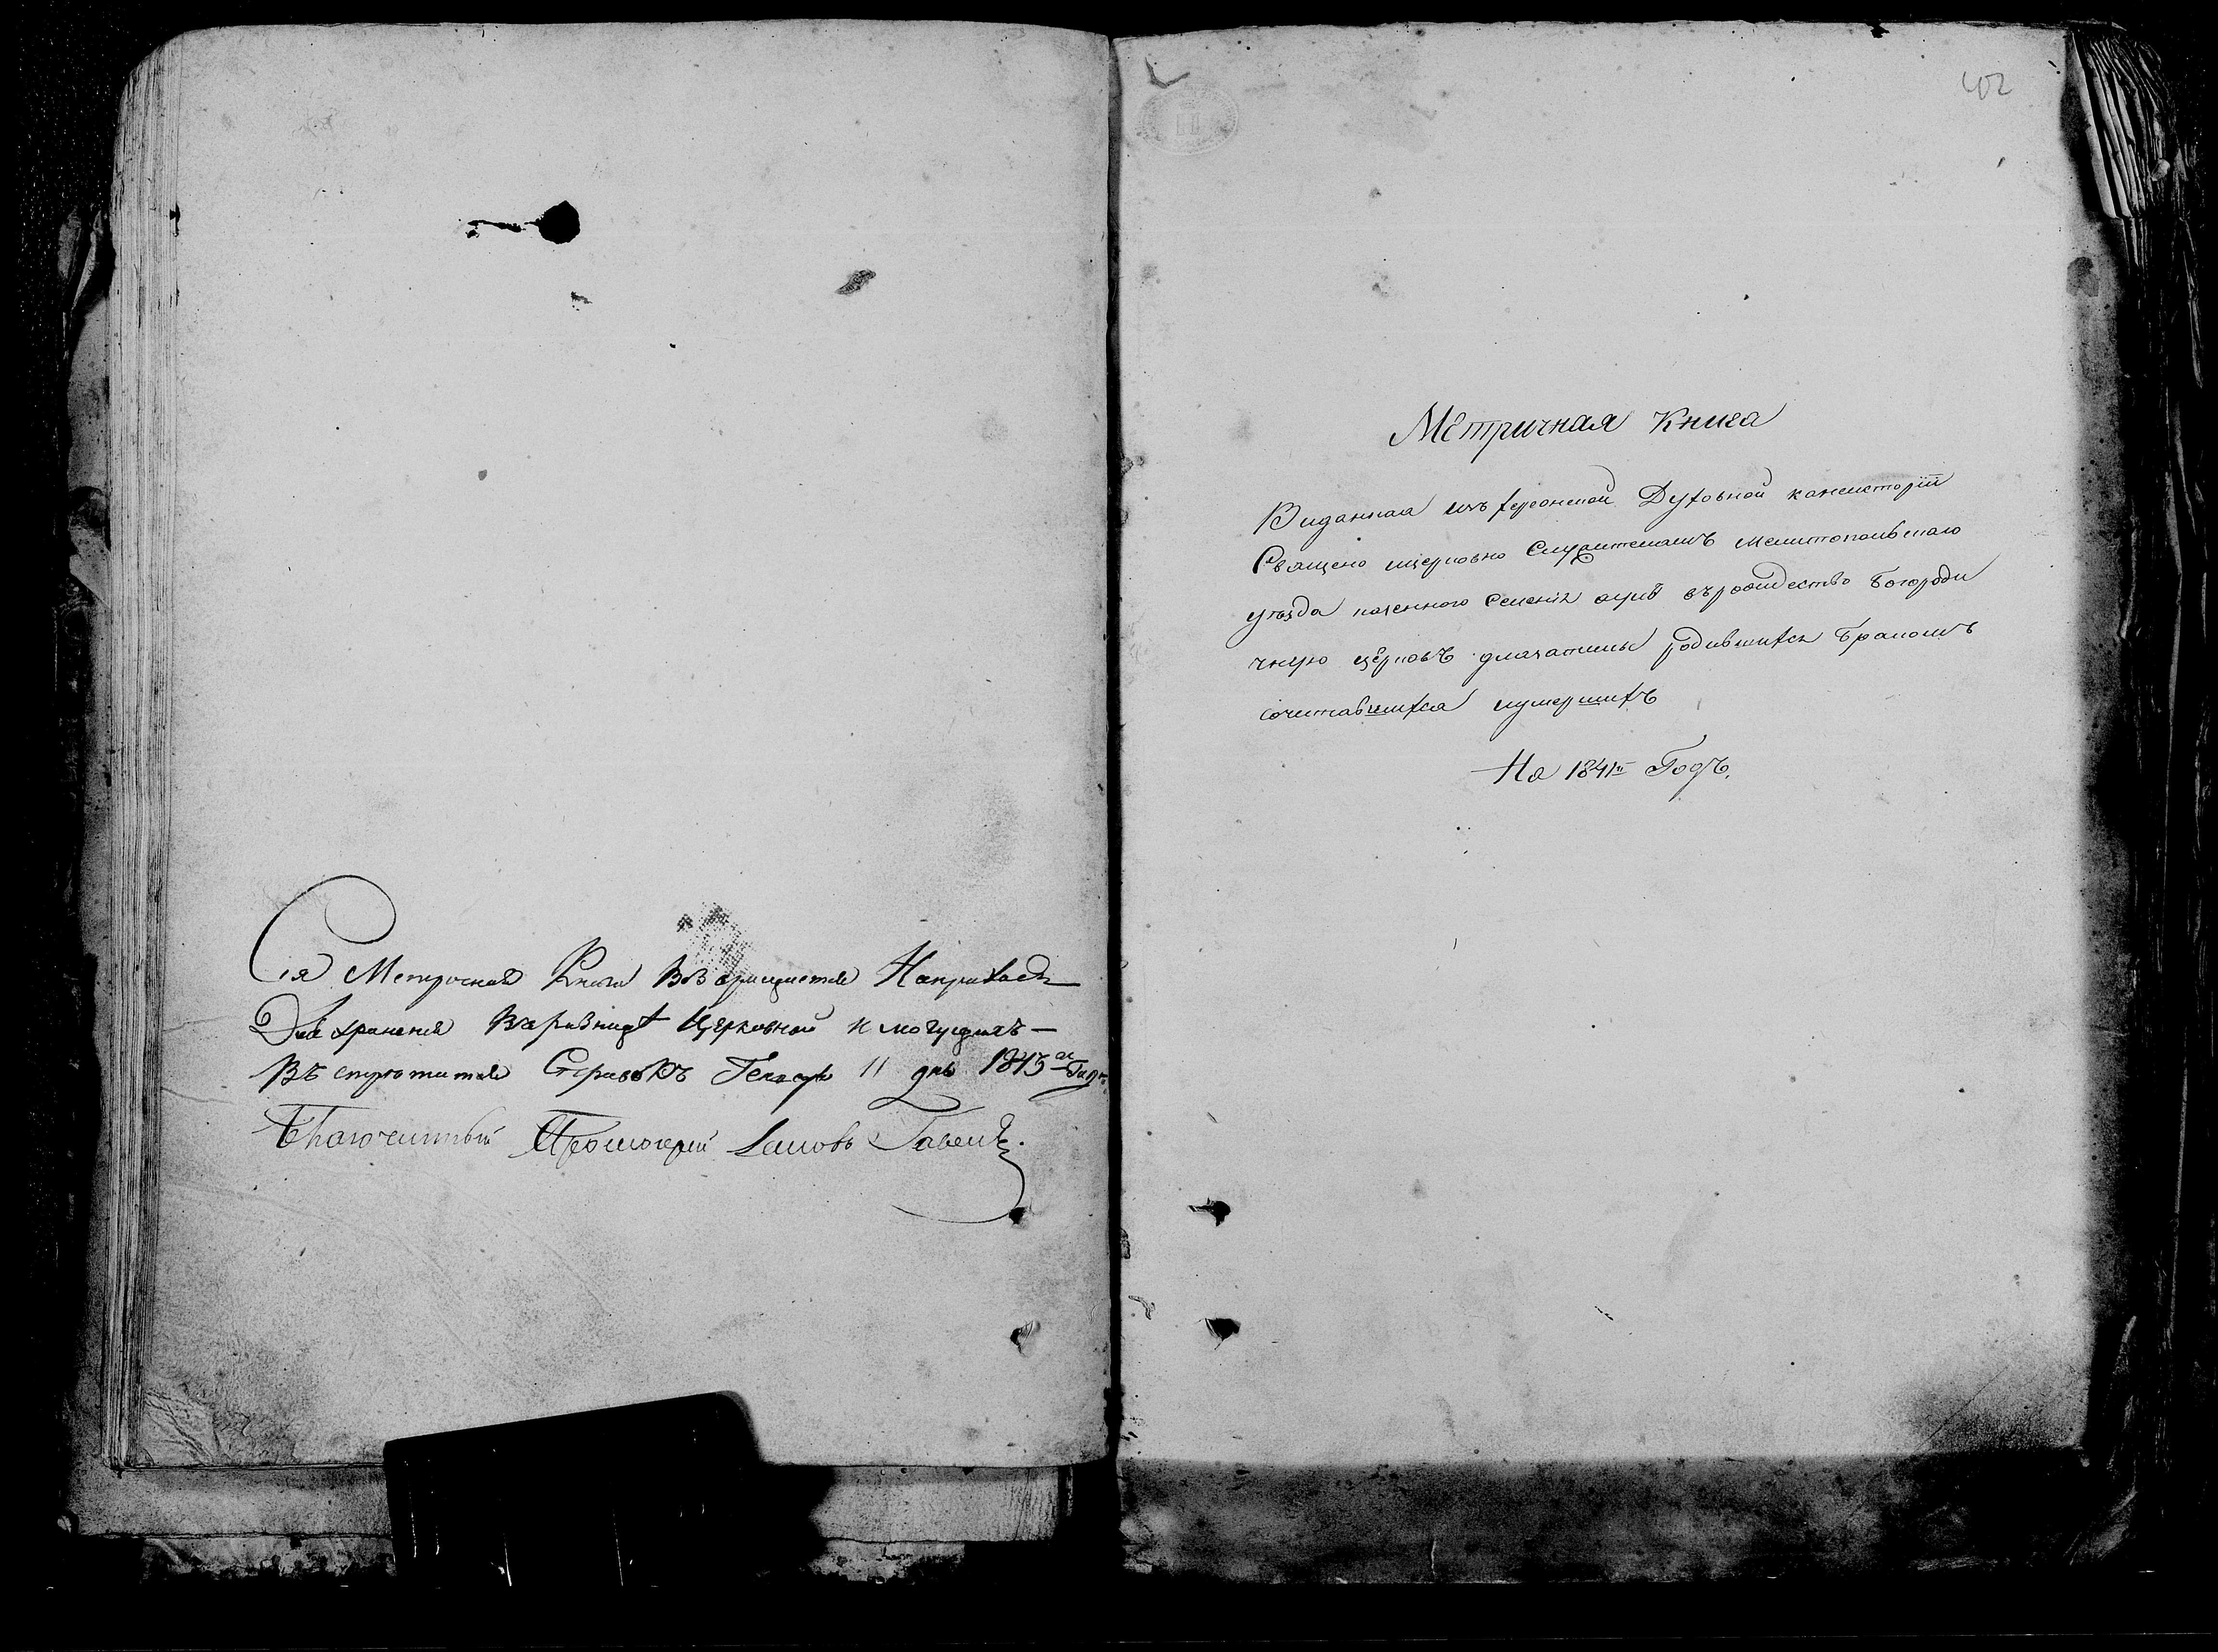 Сія Метрочная Книга Возвращается На приходъ
Для хранения Въ ризницѣ Церковной и могущихъ —
Въ случится Справокъ Генваря 11 дня 1843 го Года
Благочинный Протоіерей Іаковъ
402
Метричная Книга
Виданная изъ херсонской Духовной консисторіи
Священо ицерковно Служителамъ мелитопольскаго
уѣзда казенного Селенія въ рождество Богороди
чную церковъ родившихся браком
сочитавшихся иумершихъ
На 1841й Годъ.